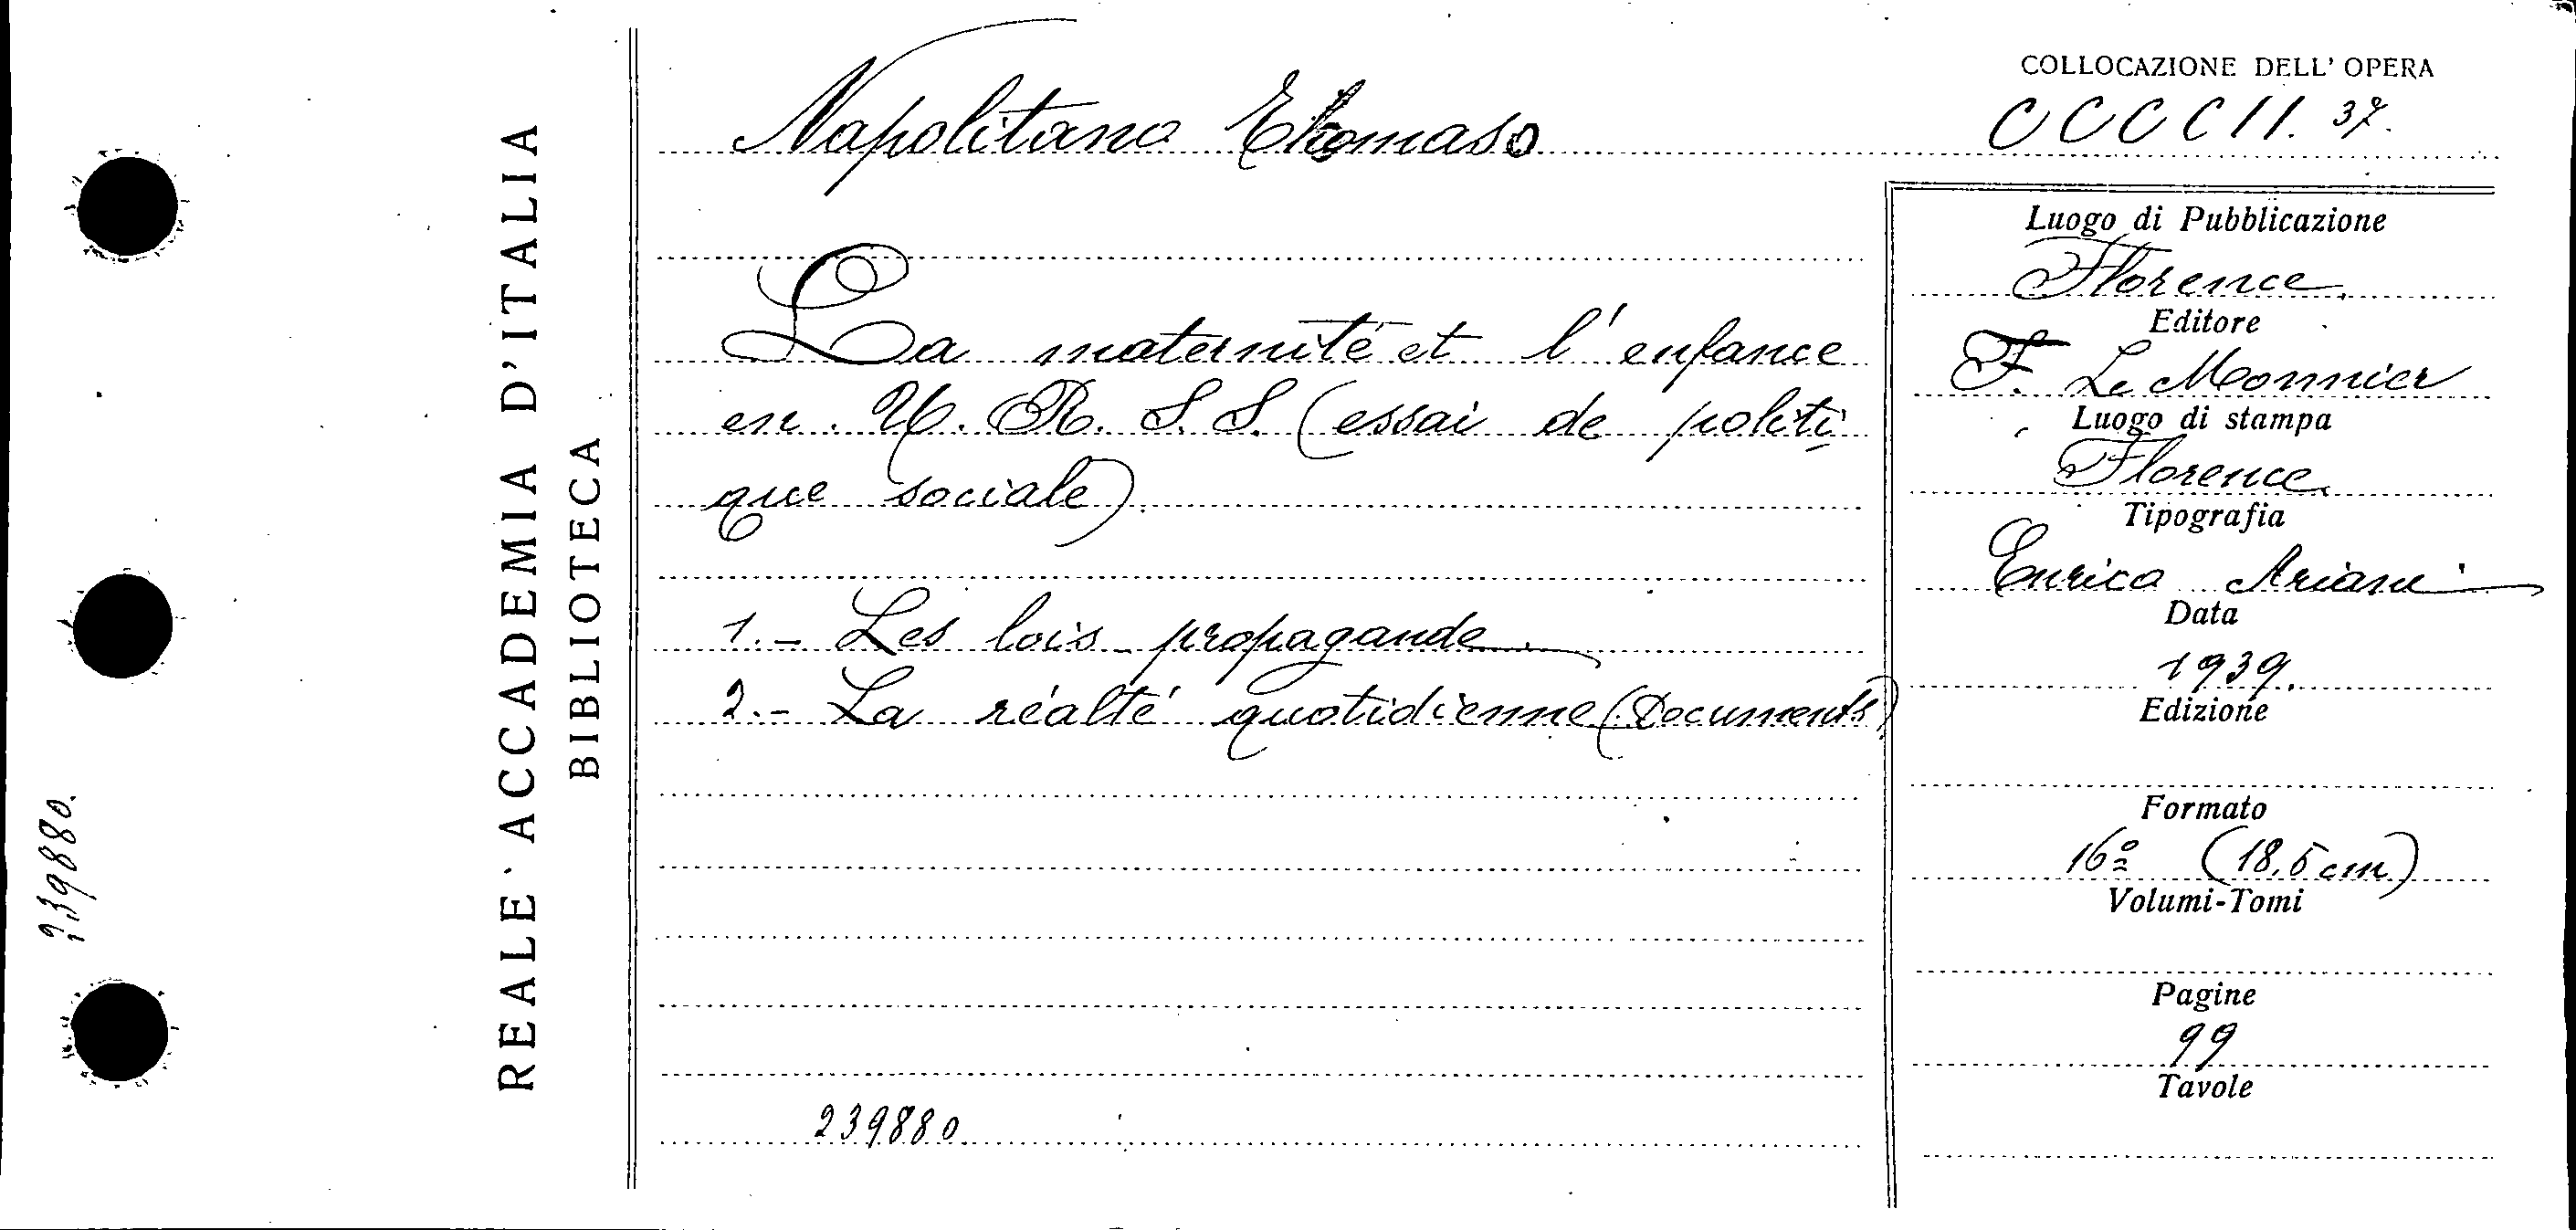 239880.
REALE ACCADEMIA D'ITALIA
BIBLIOTECA
Napolitano Thomaso
La maternité et l'enfance
en U. R. S. S. (essai de politi
que sociale).
1. - Les lois - propagande.
2. - La réalté quotidienne (Documents)
239880
COLLOCAZIONE DELL' OPERA
CCCCII. 37.
Luogo di Pubblicazione
Florence.
Editore
F. Le Monnier
Luogo di stampa
Florence.
Tipografia
Enrico Ariani
Data
1939.
Edizione
Formato
16º (18,5 cm)
Volumi-Tomi
Pagine
99
Tavole